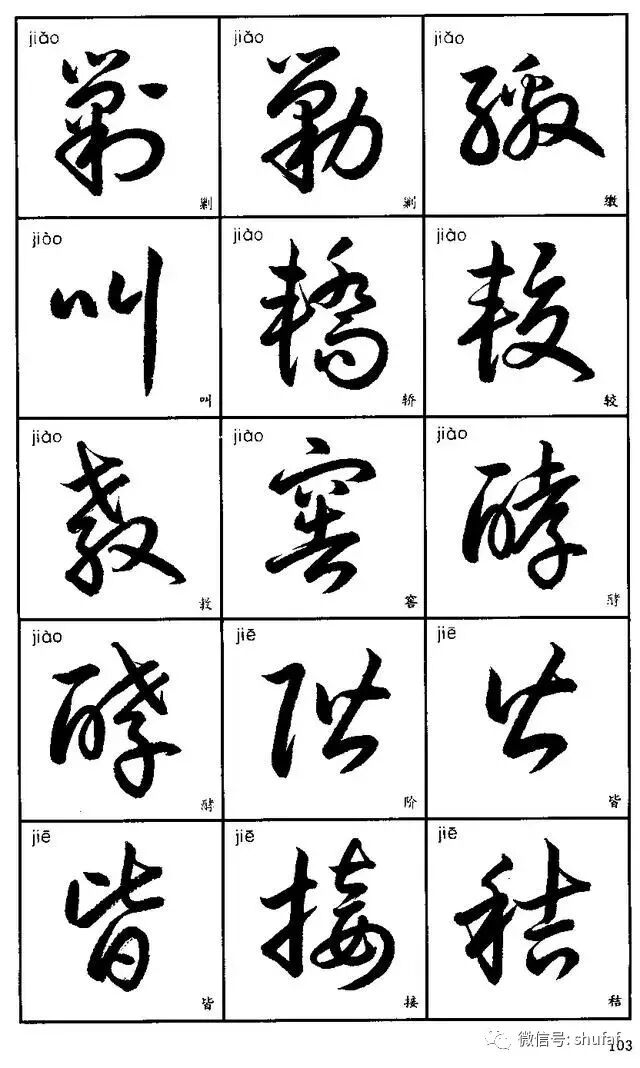 jiǎo jiǎo jiǎo
剿 剿 缴
jiào jiào jiào
叫 轿 较
jiào jiào jiào
教 窖 酵
jiào jiē jiē
酵 阶 皆
jiē jiē jiē
皆 接 秸
微信号: shufaf
103